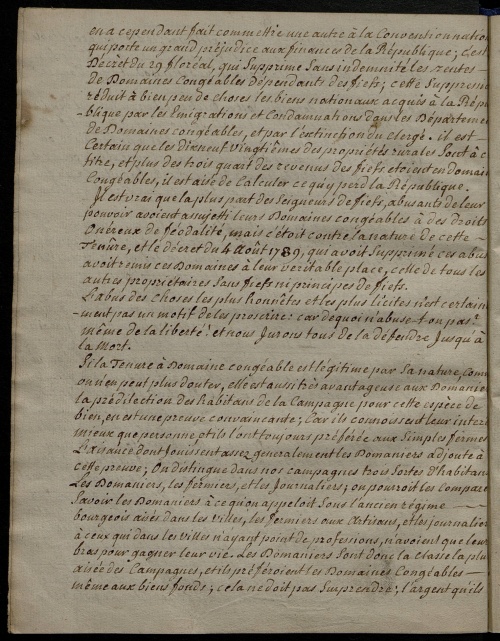 en a cependant fait commettre une autre à la Convention nation
qui porte un grand préjudice aux finances de la République; C'est
Décret du 29 floréal, qui Supprime Sans indemnité les rentes
de Domaines Congéables Dépendants des fiefs; cette Suppression
réduit à bien peu de choses les biens nationaux acquis à la Répu
-blique par les Emigrations et Condamnations dans les Départemen
de Domaines congéables, et par l'extinction du clergé. il est
Certain que les dixneuf vingtièmes des propriétés rurales Sont à c
titre, et plus des trois quart des revenus des fiefs etoient en domain
Congéables, il est aisé de Calculer ce qu'y perd la République.
Il est vrai que la plus part des Seigneurs de fiefs, abusants de leur
pouvoir avoient assujetti leurs Domaines congéables à des Droits
Onéreux de féodalité, mais c'étoit contre la nature de cette
Tenure, et le décret du 4 Août 1789, qui avoit Supprimé ces abus
avoit remis ces Domaines à leur veritable place, celle de tous les
autres proprietaires Sans fiefs ni principes de fiefs.
L'abus des choses les plus honnêtes et les plus licites n'est certain
-ment pas un motif de les proscrire: car de quoi n'abuse-t-on pas?
même de la liberté! et nous Jurons tous de la défendre Jusqu'à
la mort.
Si la Tenure à Domaine congéable est légitime par Sa nature, Comm
on n'en peut plus douter, elle est aussi très avantageuse aux Domanie
la prédilection des habitans de la Campagne pour cette espèce de
bien, en est une preuve convaincante; Car ils connoissent leur intere
mieux que personne, et ils l'ont toujours préférée aux Simples fermes
L'aisance dont Jouissent assez generalement les Domaniers adjoute à
cette preuve; On distingue dans nos campagnes trois Sortes d'habitans
Les Domaniers, les fermiers, et les Journaliers; on pourroit les Compare
Savoir les Domaniers à ce qu'on appeloit Sous l'ancien régime
bourgeois aisés dans les villes, les fermiers aux Artisans, et les journalier
à ceux qui dans les villes n'ayant point de professions, n'avoient que leur
bras pour gagner leur vie. Les Domaniers Sont donc la classe la plu
aisée des Campagnes, et ils préféroient les Domaines Congéables
même aux biens fonds; cela ne doit pas Surprendre; l'argent qu'ils